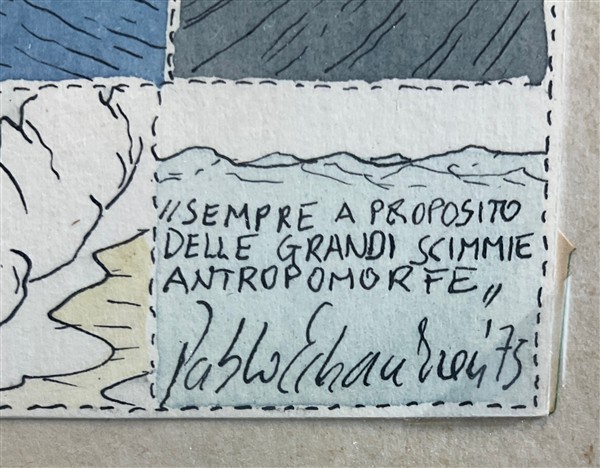 "SEMPRE A PROPOSITO
DELLE GRANDI SCIMMIE
ANTROPOMORFE„
Pablo Echaurren '75